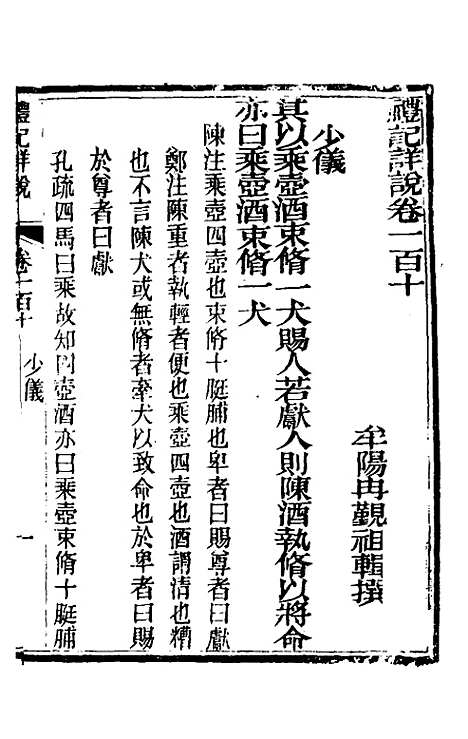 禮記詳說卷一百十
牟陽冉覲祖輯撰
少儀
其以乘壺酒束脩一犬賜人若獻人則陳酒執脩以將命
亦曰乘壺酒束脩一犬
陳注乘壺四壺也束脩十脡脯也卑者曰賜尊者曰獻
鄭注陳重者執輕者便也乘壺四壺也酒謂清也糟
也不言陳犬或無脩者牽犬以致命也於卑者曰賜
於尊者曰獻
孔疏四馬曰乘故知四壺酒亦曰乘壺束脩十脡脯
禮記詳說
卷一百十
少儀
一